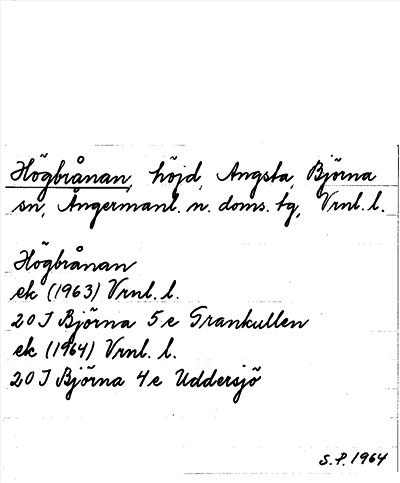 Högbrånan, höjd, Angsta, Björna
sn, Ångermanl. n. doms. tg, Vrnl. l.
Högbrånan
ek (1963) Vrnl. l.
20 I Björna 5 e Grankullen
ek (1964) Vrnl. l.
20 I Björna 4 e Uddersjö
S.P. 1964